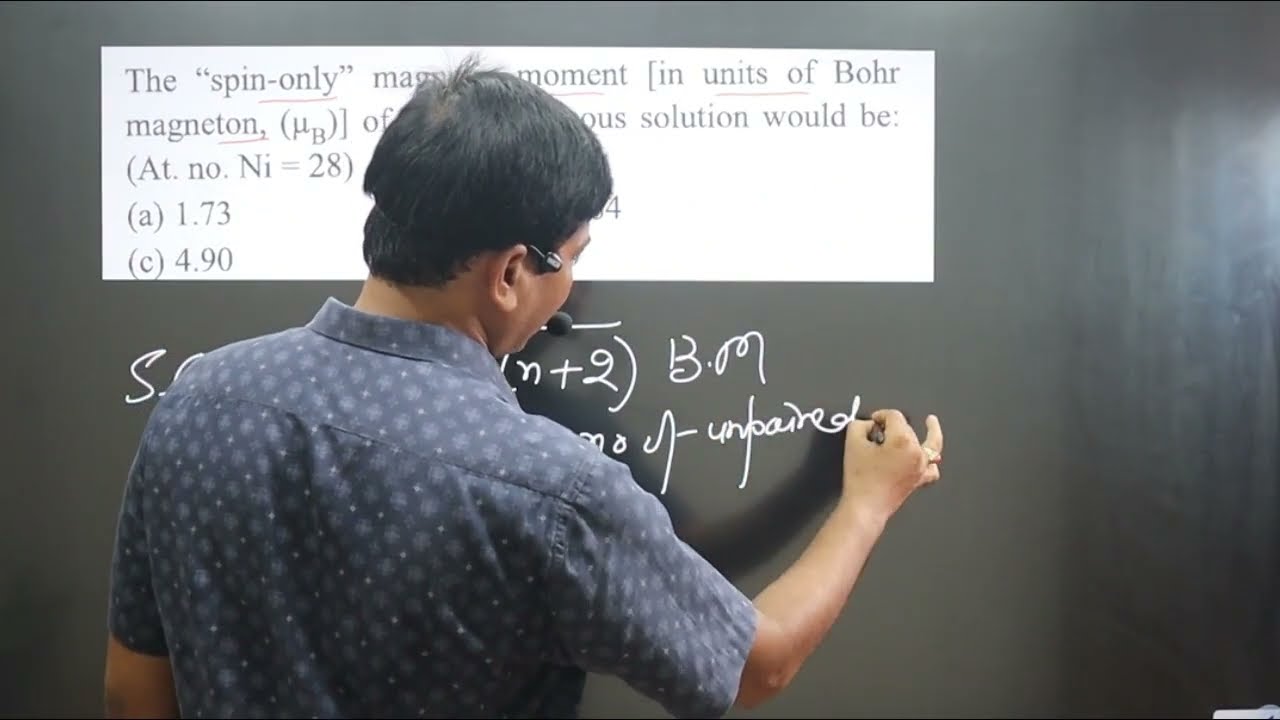 The “spin-only” moment [in units of Bohr
magneton, (μB)] of solution would be:
(At. no. Ni = 28)
(a) 1.73
(c) 4.90
(n+2) B.M
no of unpaired